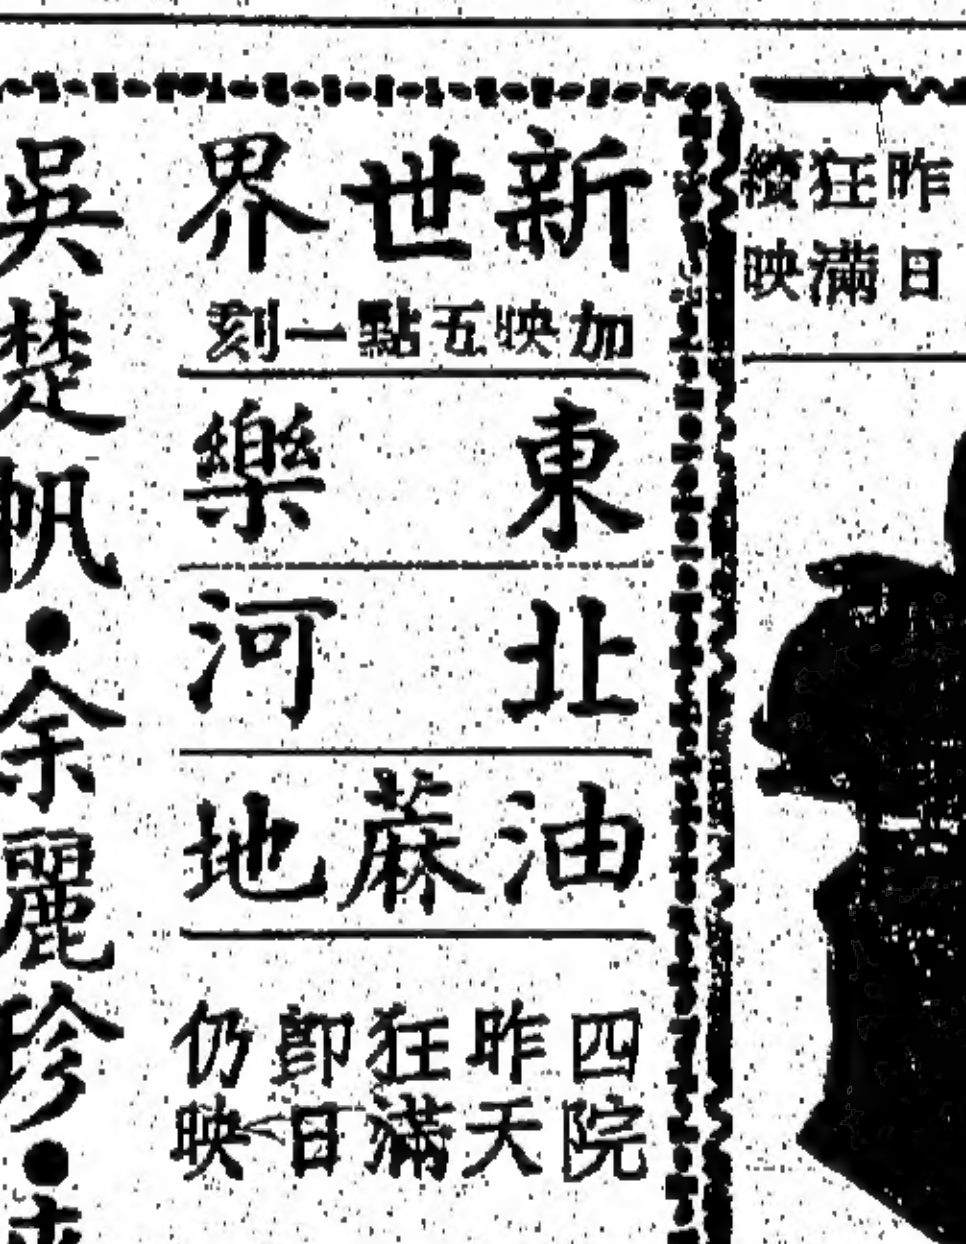 昨日
狂滿
續映
新世界
加映五點一刻
東樂
北河
油蔴地
四院
昨天
狂滿
即日
仍映
吳楚帆・余麗珍・